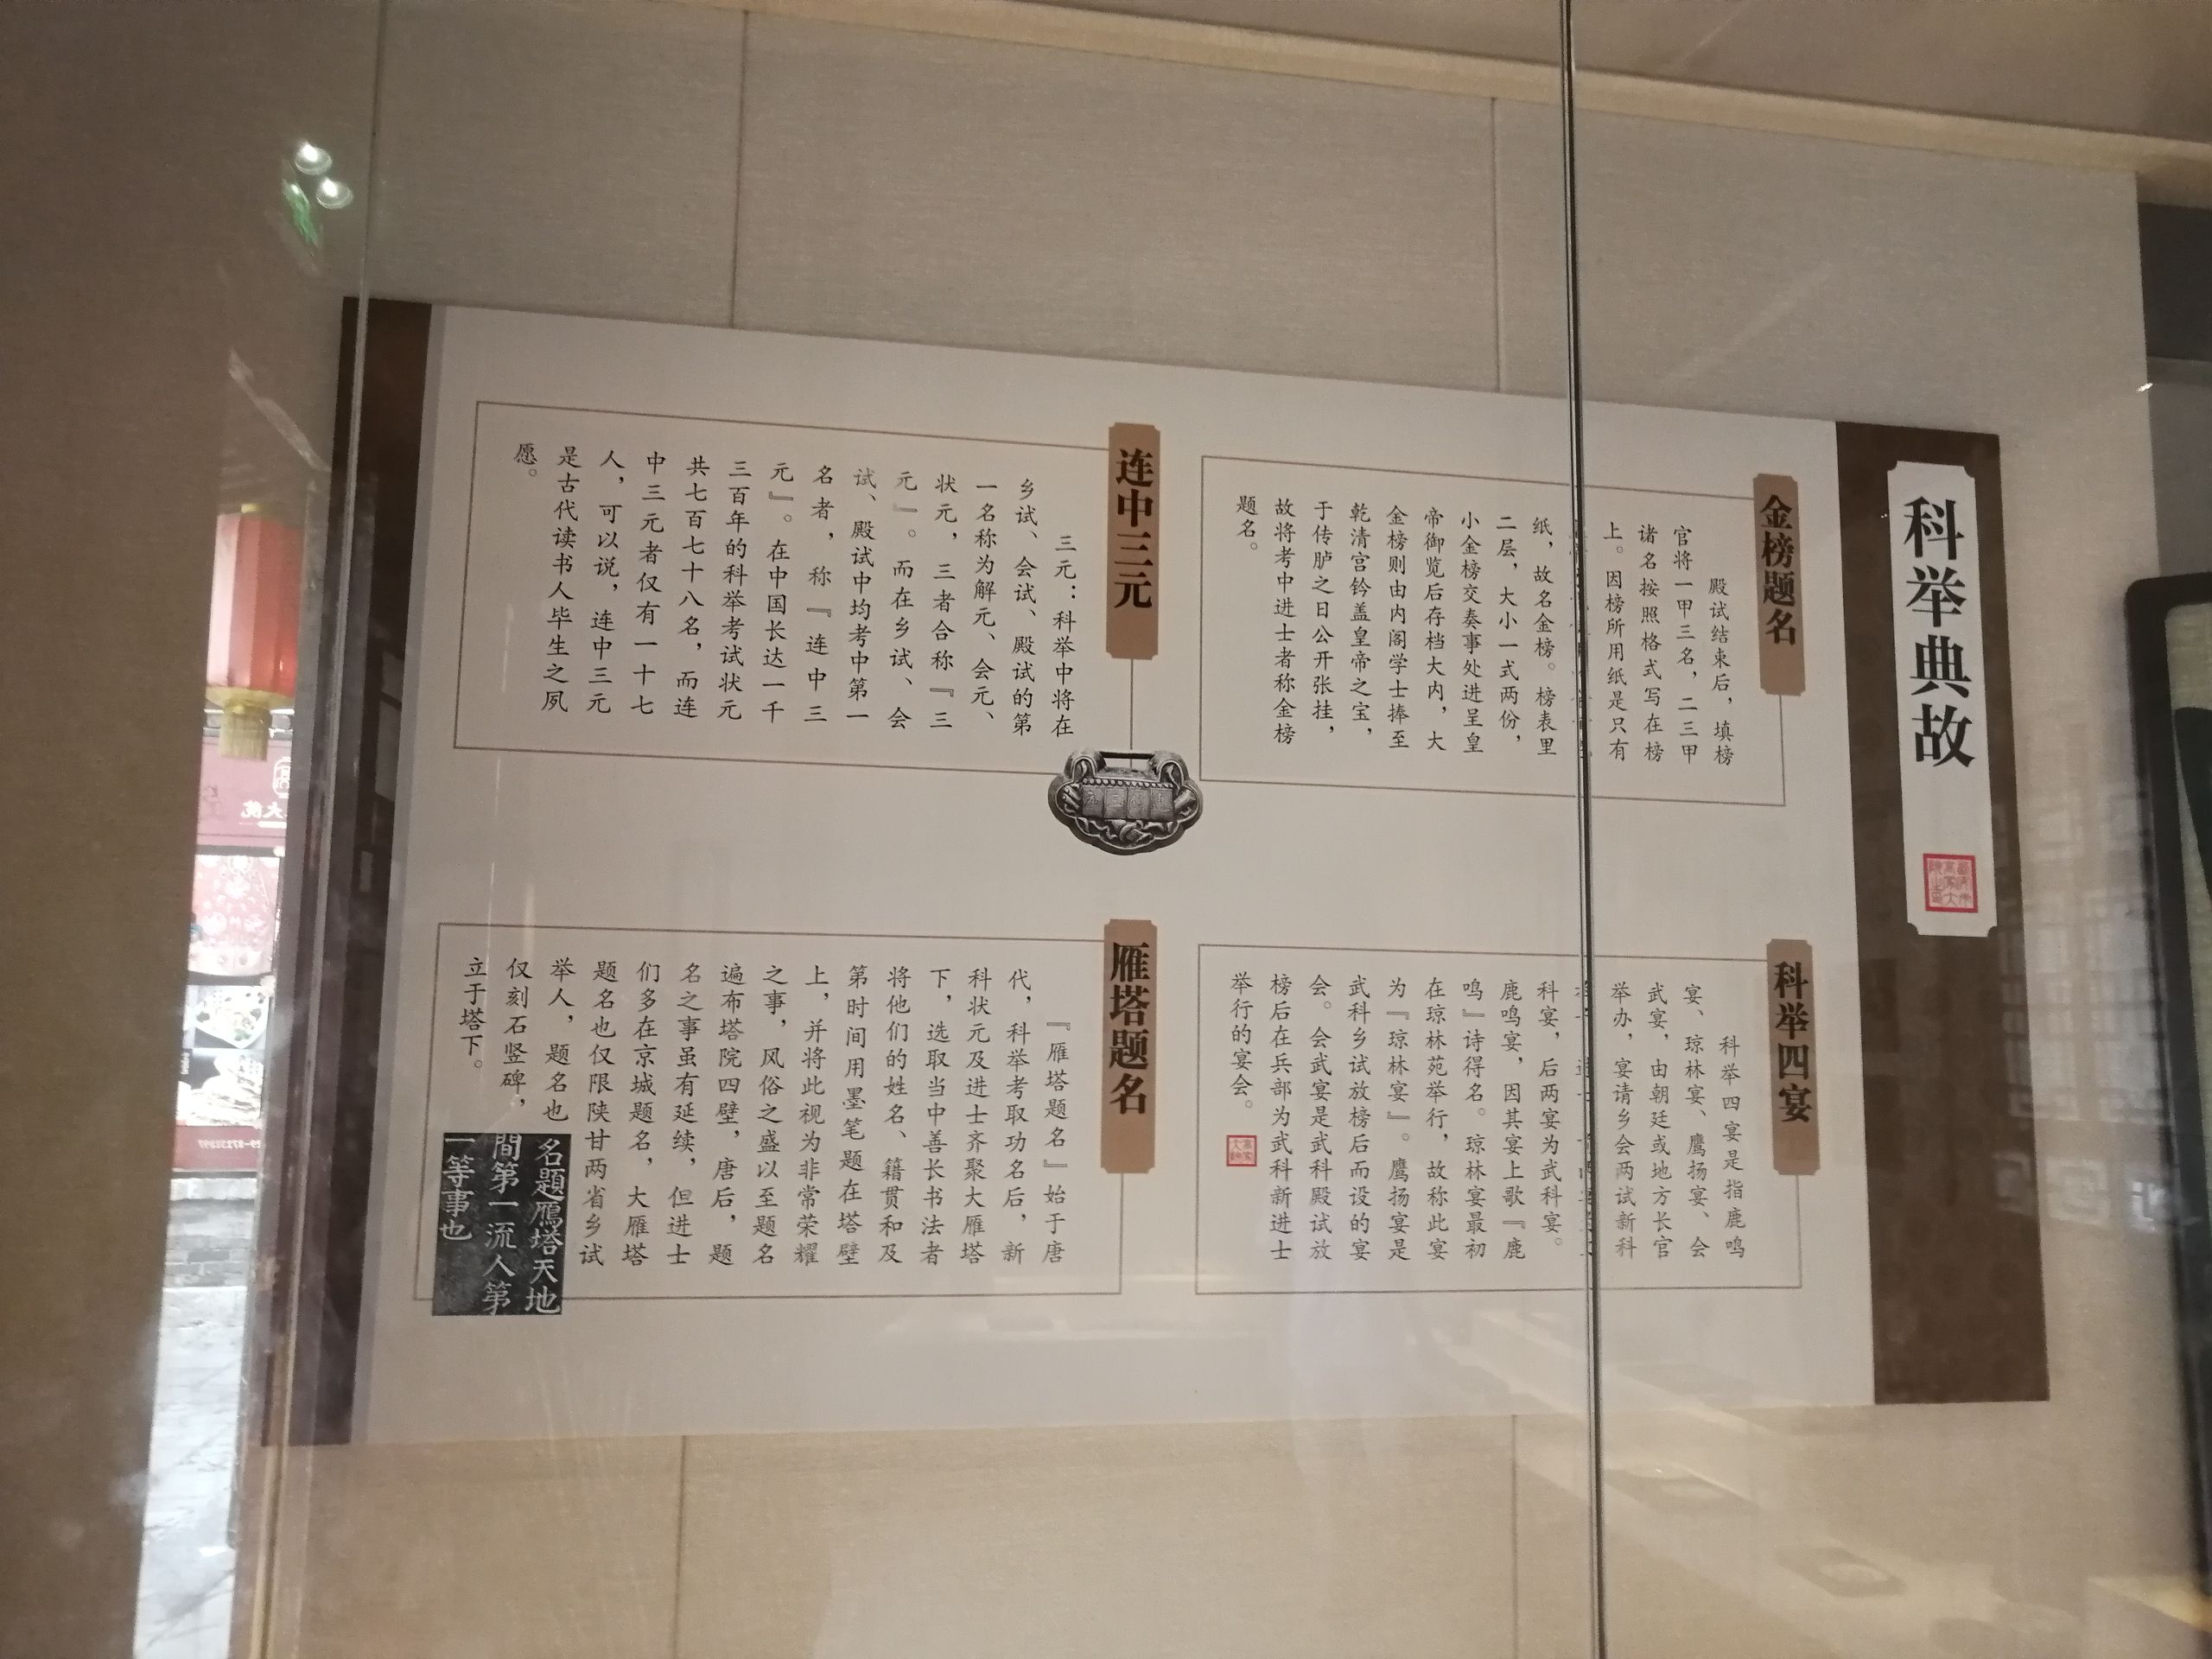 科举典故
金榜题名
殿试结束后，填榜
官将一甲三名，二三甲
诸名按照格式写在榜
上。因榜所用纸是只有
纸，故名金榜。榜表里
二层，大小一式两份，
小金榜交奏事处进呈皇
帝御览后存档大内，大
金榜则由内阁学士捧至
乾清宫钤盖皇帝之宝，
于传胪之日公开张挂，
故将考中进士者称金榜
题名。
连中三元
三元：科举中将在
乡试、会试、殿试的第
一名称为解元、会元、
状元，三者合称『三
元』。而在乡试、会
试、殿试中均考中第一
名者，称『连中三
元』。在中国长达一千
三百年的科举考试状元
共七百七十八名，而连
中三元者仅有一十七
人，可以说，连中三元
是古代读书人毕生之夙
愿。
科举四宴
科举四宴是指鹿鸣
宴、琼林宴、鹰扬宴、会
武宴，由朝廷或地方长官
举办，宴请乡会两试新科
科宴，后两宴为武科宴。
鹿鸣宴，因其宴上歌『鹿
鸣』诗得名。琼林宴最初
在琼林苑举行，故称此宴
为『琼林宴』。鹰扬宴是
武科乡试放榜后而设的宴
会。会武宴是武科殿试放
榜后在兵部为武科新进士
举行的宴会。
雁塔题名
『雁塔题名』始于唐
代，科举考取功名后，新
科状元及进士齐聚大雁塔
下，选取当中善长书法者
将他们的姓名、籍贯和及
第时间用墨笔题在塔壁
上，并将此视为非常荣耀
之事，风俗之盛以至题名
遍布塔院四壁，唐后，题
名之事虽有延续，但进士
们多在京城题名，大雁塔
题名也仅限陕甘两省乡试
举人，题名也
仅刻石竖碑，
立于塔下。
名題鴈塔天地
間第一流人第
一等事也